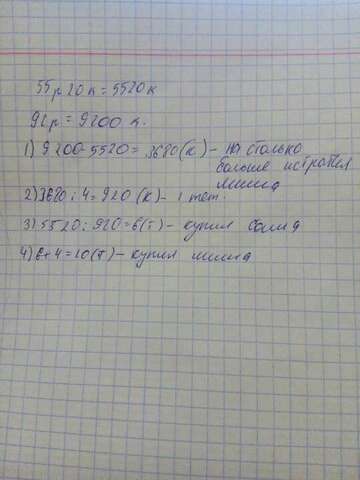 55р 20 к = 5520 к
92р = 9200 к.
1) 9200-5520 = 3680 (к) - на столько
больше истратил
миша
2) 3680 : 4 = 920 (к) - 1 тет.
3) 5520 : 920 = 6 (т) - купил
4) 6+4 = 10 (т) - купил миша